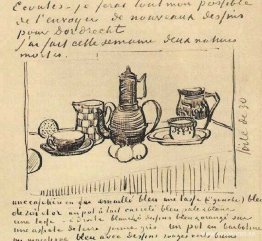 Ecoutes - je ferai tout mon possible
de t'envoyer de nouveaux dessins
pour Dordrecht
J'ai fait cette semaine deux natures
mortes.
toile de 30
une cafetiere en fer emaillé bleu une tasse (à gauche) bleu
de roi et or un pot à lait carrelé bleu
une tasse à droite blanche dessins bleus orangé sur
une assiette de terre jaune gris un pot en barbotine
bleu avec dessins rouges verts bruns